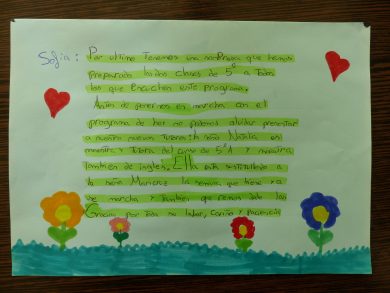 Sofia: Por ultimo Tenemos una sorpresa que hemos
preparado las dos clases de 5º a Todos
los que Escuchen este programa.
Antes de ponernos en marcha con el
programa de hoy no podemos olvidar presentar
a nuestra nueva tutora: la seño Natalia es
maestra y tutora del curso de 5ºA y maestra
también de inglés. Ella está sustituyendo a
la seña Maricruz la semana que viene ya
se marcha y también que
Gracias por Toda su labor, Cariño y Paciencia